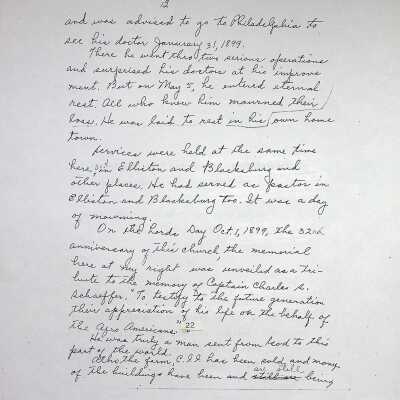 12
and was advised to go to Philadelphia to
see his doctor Janurary 31, 1899.
There he went thro two serious operations
and surprised his doctors at his improve
ment. But on May 5, he entered eternal
rest. All who knew him mourned their
loss. He was laid to rest in his own home
town.
Services were held at the same time
here, in Elliston and Blacksburg and
other places. He had served as pastor in
Elliston and Blacksburg too. It was a day
of mourning.
On the Lords Day Oct. 1, 1899, the 32nd
anniversary of this church, the memorial
here at my right was unveiled as a tri-
bute to the memory of Captain Charles S.
Schaeffer. "To testify to the future generation
their appreciation of his life on the behalf of
the Afro Americans." 22
He was truly a man sent from God to this
part of the world.
Altho the farm, C.I.I has been sold and many
of the buildings have been and still are being
are still